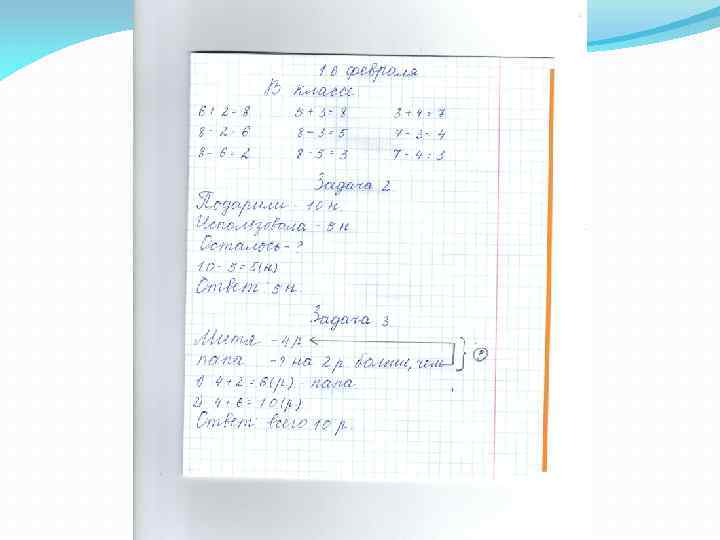 16 февраля
В классе
6+2=8 5+3=8 3+4=7
8-2=6 8-3=5 7-3=4
8-6=2 8-5=3 7-4=3
Задача 2
Подарили - 10 н.
Использовала - 5 н
Осталось - ?
10-5=5(н)
Ответ: 5 н.
Задача 3
Митя - 4 р.
папа - ? на 2 р. больше, чем ?
1) 4+2=6(р) - папа
2) 4+6=10(р)
Ответ: всего 10 р.